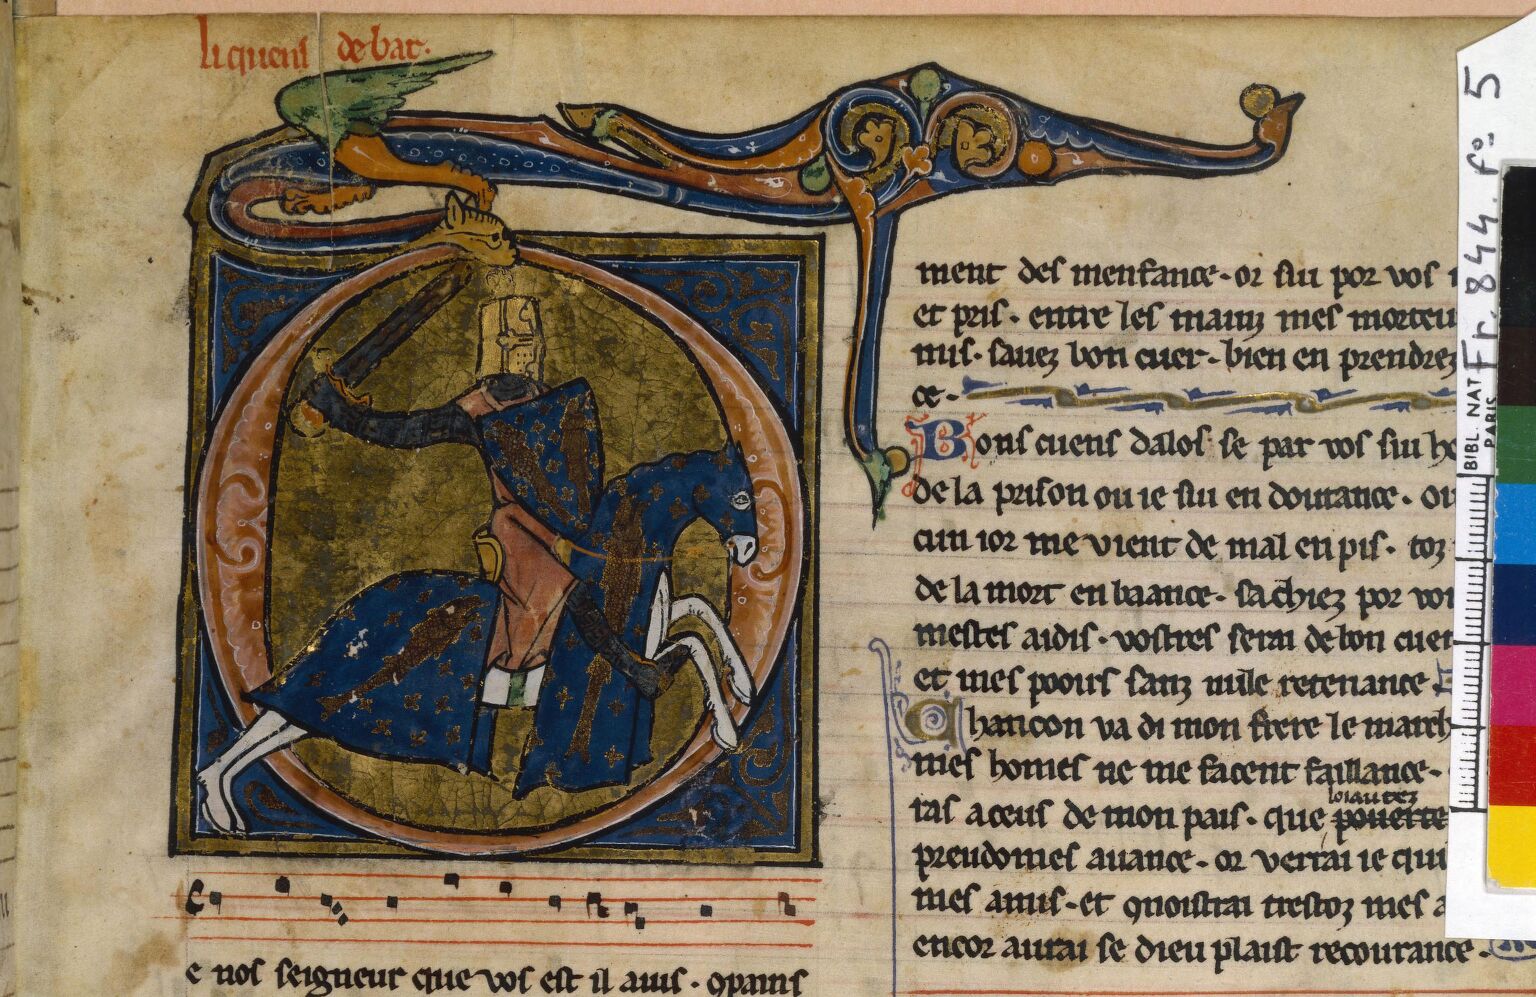 li quens de bar.
e nos seigneur que vos est il auis. qpains
ment des menfance. or sui por vos
et pris. entre les mainz mes morteu
mis. sauez bon cuer. bien en prendrez
ce.
Bons cuens dalos se par vos sui ho
de la prison ou ie sui en doutance. ou
cun ior me vient de mal en pis. toz
de la mort en baance. sachiez por voi
mestes aidis. vostres serai de bon cuer
et mes pooirs sanz nule retenance
Chancon va di mon frere le march
mes homes ne me facent faillance.
ras a ceus de mon pais. que
loiautez
pouerte
preudomes auance. or verrai ie qui
mes amis. et quoistrai trestoz mes a
encor aurai se dieu plaist recourance.
Fr. 844. fº 5
BIBL. NAT
PARIS